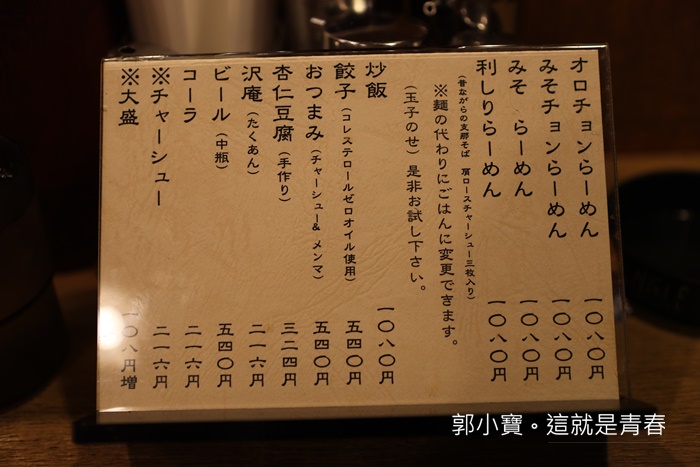 オロチョンらーめん 一〇八〇円
みそチョンらーめん 一〇八〇円
みそ らーめん 一〇八〇円
利しりらーめん 一〇八〇円
(昔ながらの支那そば 肩ロースチャーシュー三枚入り)
※麺の代わりにごはんに変更できます。
(玉子のせ)是非お試し下さい。
炒飯 一〇八〇円
餃子(コレステロールゼロオイル使用) 五四〇円
おつまみ(チャーシュー& メンマ) 五四〇円
杏仁豆腐(手作り) 三二四円
沢庵(たくあん) 二一六円
ビール(中瓶) 五四〇円
コーラ 二一六円
※チャーシュー 二一六円
※大盛 一〇八円増
郭小寶。這就是青春